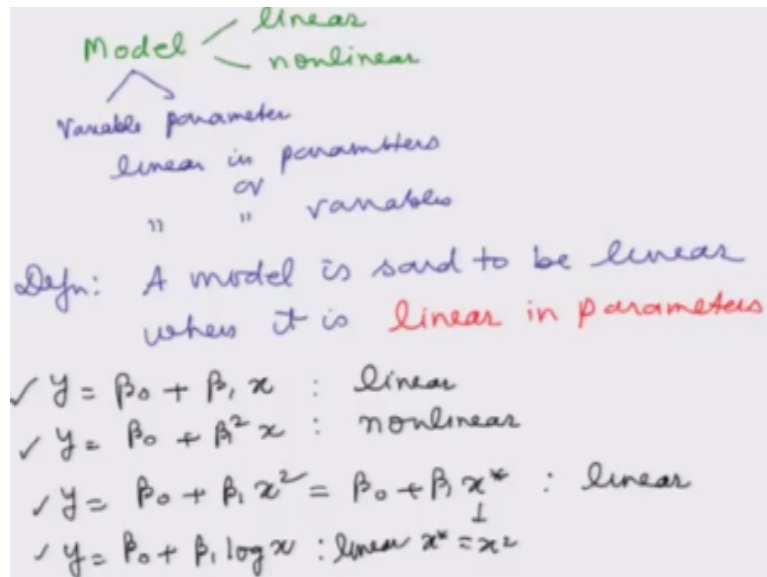 linear
Model
nonlinear
Variable parameter
linear in parameters
or
" " variables
Defn: A model is said to be linear
when it is linear in parameters
✓ y = β₀ + β₁ x : linear
✓ y = β₀ + β₁² x : nonlinear
✓ y = β₀ + β₁ x² = β₀ + β₁ x* : linear
↓
✓ y = β₀ + β₁ log x : linear x* = x²